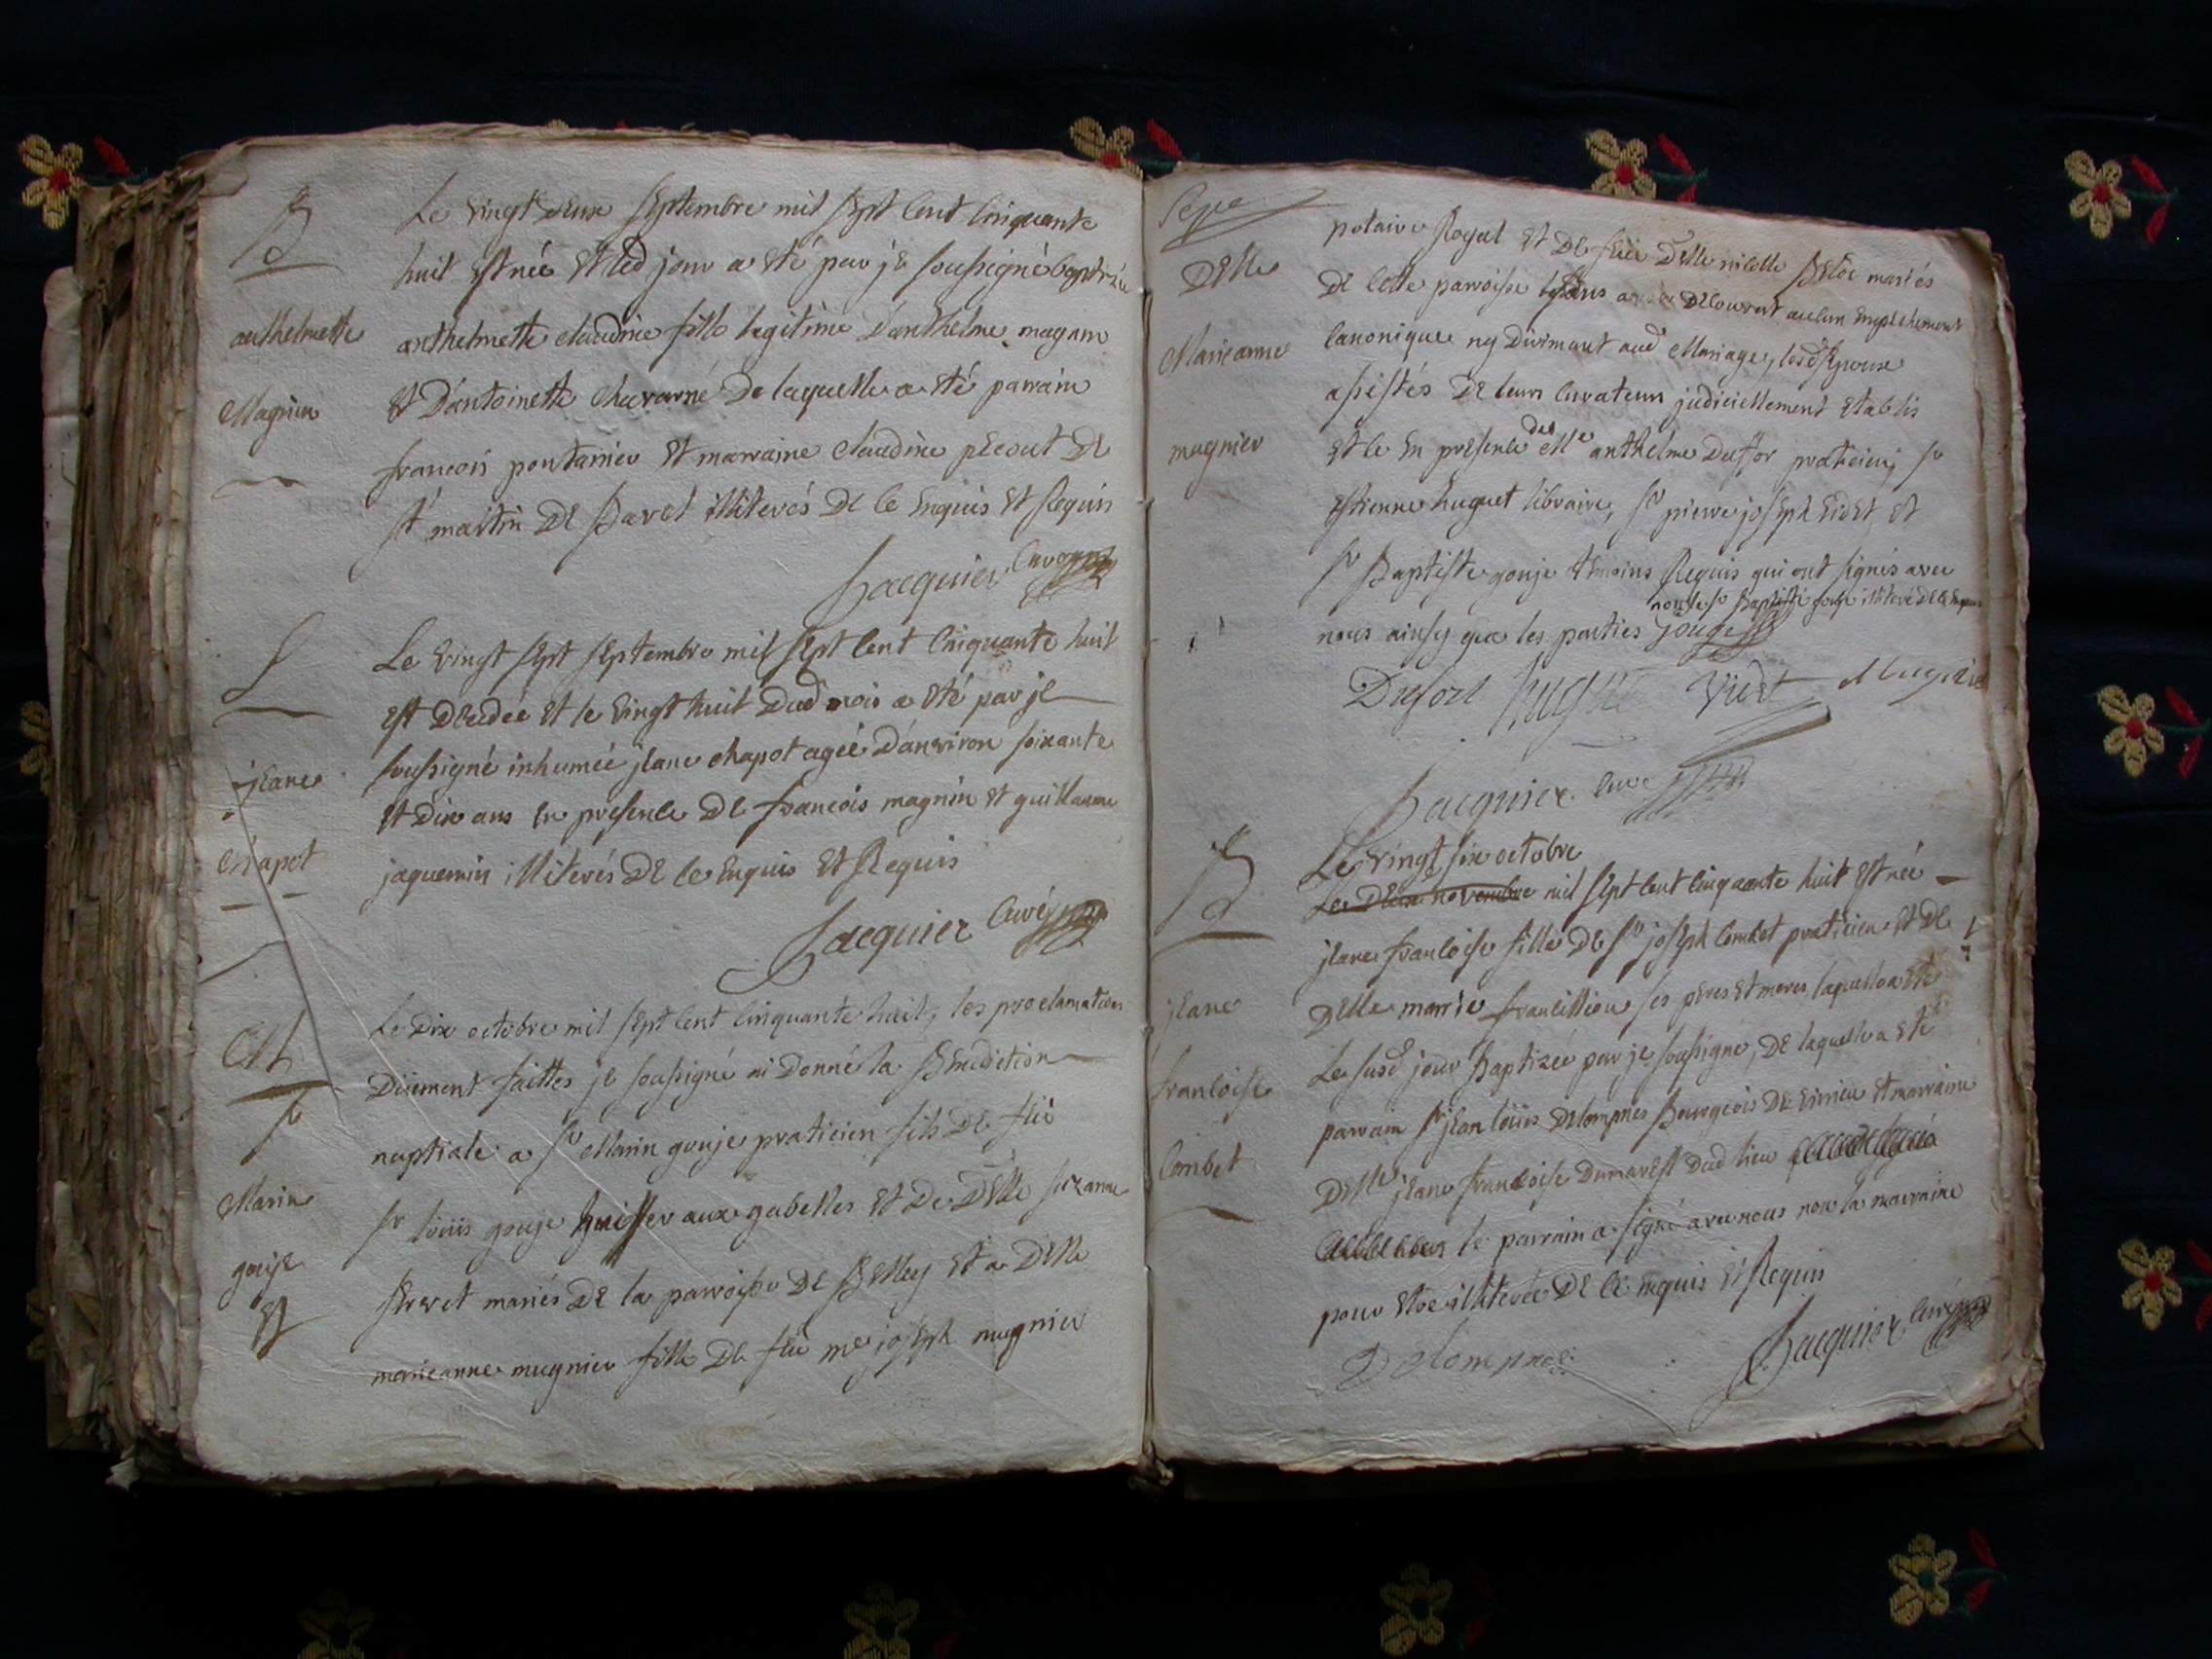 B
Le vingt deux septembre mil sept cent cinquante
huit est née et led jour a été par je soussigné baptizée
anthelmette
anthelmette claudine fille legitime d'anthelme magnin
Magnin
et d'antoinette chavarné de laquelle a eté parrain
francois pontanier et marraine claudine pecout de
st martin de bavel illiterés de ce enquis et requis
Jacquier curé
S
Le vingt sept septembre mil sept cent cinquante huit
est decedée et le vingt huit dud mois a été par je
jeane
soussigné inhumée jeane chapot agée d'anviron soixante
et dix ans en presence de francois magnin et guillaume
Chapot
jaquemin illiterés de ce enquis et requis
Jacquier curé
M
Le dix octobre mil sept cent cinquante huit, les proclamations
düement faittes je soussigné ai donné la benediction
sr
nuptiale a sr Marin gouje praticien fils de feü
Marin
sr loüis gouje huissier aux gabelles et de Delle suzanne
gouje
et
mariés de la parroisse de Belley et a Delle
marieanne mugnier fille de feü me joseph mugnier
Delle
notaire Royal et de feüe Delle nicolle mariés
Marieanne
de cette parroisse decouvert aucun empechement
canonique ny dirimant aud Mariage, lesd Epoux
assistés de leurs curateurs judiciellement etablis
mugnier
et ce en presence des Me anthelme Dufor praticien, sr
estienne huguet libraire, sr pierre joseph videt et
sr Baptiste gouje temoins Requis qui ont signés avec
non le sr Baptiste gouje illiteré de ce enquis
nous ainsy que les parties Gouge
Dufort huguet Videt Mugnier
Jacquier curé
B
Le vingt six octobre
Le deux novembre mil sept cent cinquante huit est née
jeane francoise fille de sr joseph Combet praticien et de
jeane
Delle marie ses peres et meres laquelle a eté
francoise
Le susd jour Baptizée par je soussigné, de laquelle a eté
Combet
parrain sr jean loüis Delompnes Bourgeois de virieu et marraine
Delle jeane francoise Dumarest dud lieu
le parrain a signé avec nous non la marraine
pour etre illiterée de ce enquis et Requis
Delompnes
Jacquier curé